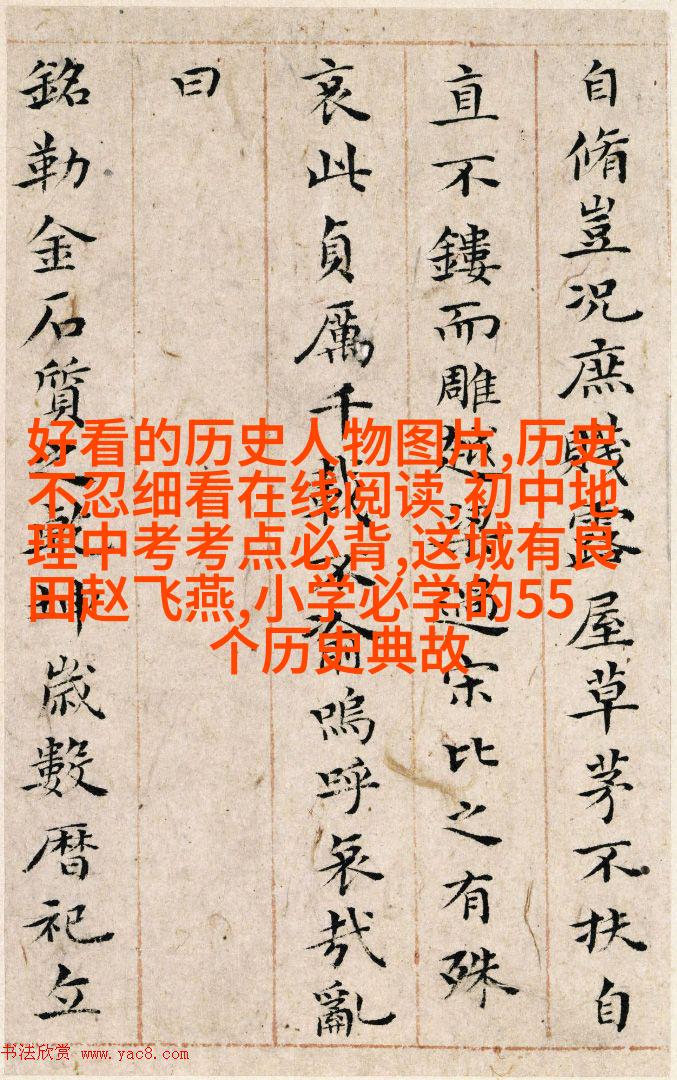 自脩豈況庶賤露屋草茅不扶自
直不鏤而雕越梁過宋比之有殊
哀此貞厲千載不渝嗚呼哀哉亂
曰
銘勒金石質之乾坤歲數曆祀立
好看的历史人物图片,历史
不忍细看在线阅读,初中地
理中考考点必背,这城有良
田赵飞燕,小学必学的55
个历史典故
书法欣赏 www.yac8.com